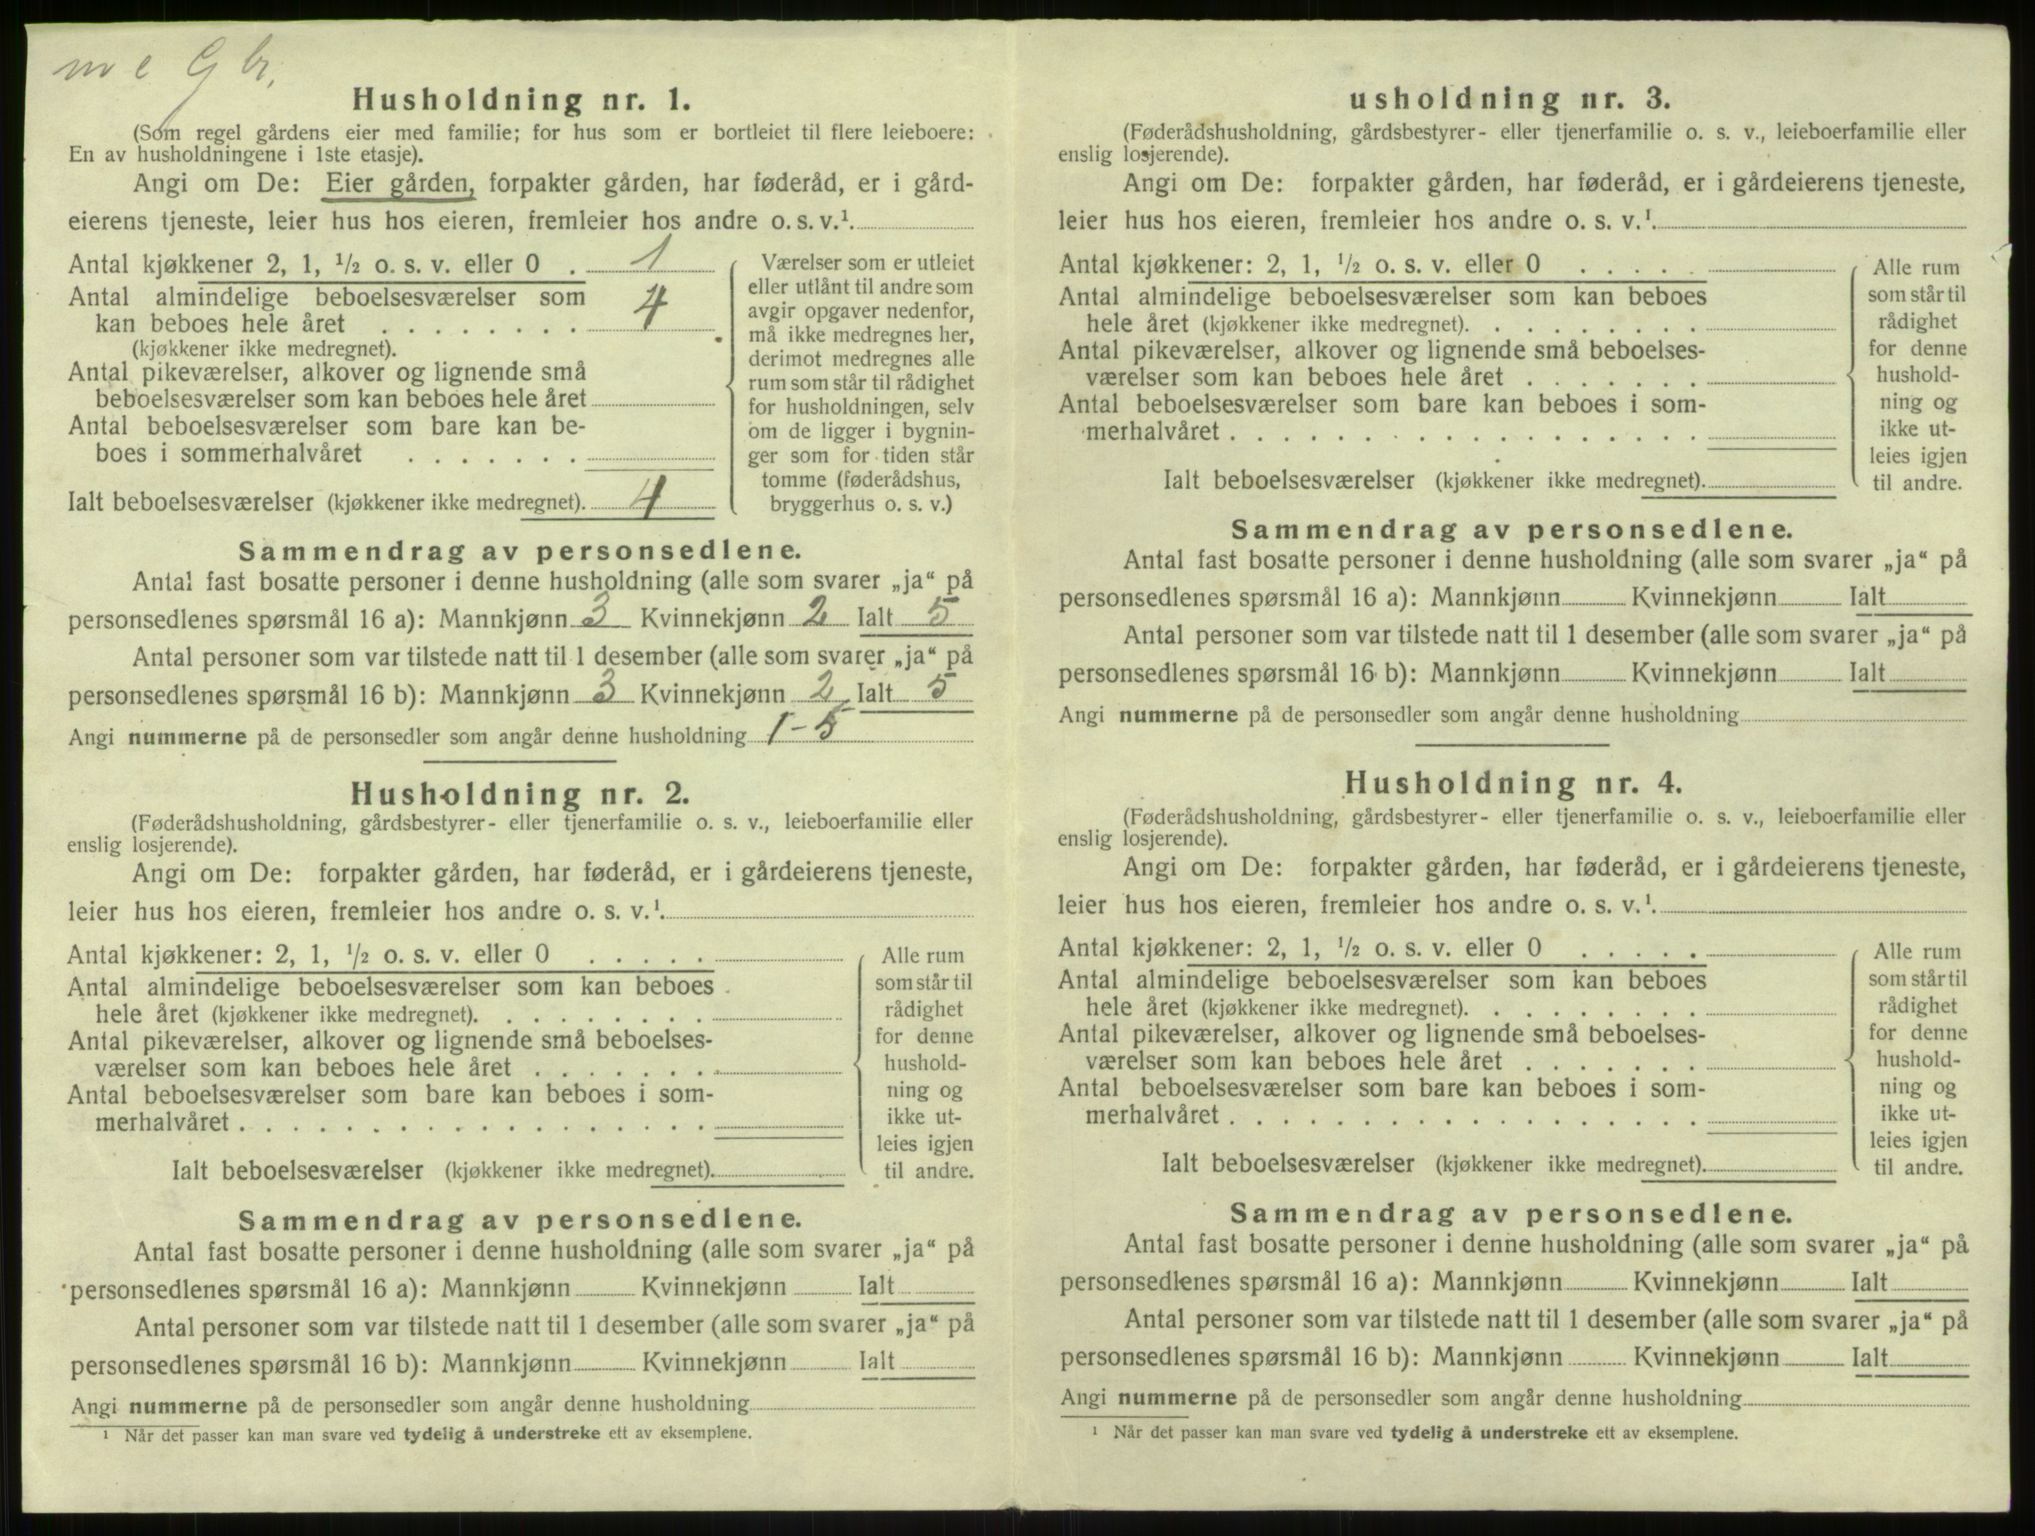 Husholdning nr. 1.
(Som regel gårdens eier med familie; for hus som er bortleiet til flere leieboere:
En av husholdningene i 1ste etasje).
Angi om De: Eier gården, forpakter gården, har føderåd, er i gård-
eierens tjeneste, leier hus hos eieren, fremleier hos andre o. s. v.¹
Antal kjøkkener 2, 1, ½ o. s. v. eller 0 . 1
Antal almindelige beboelsesværelser som
kan beboes hele året . . . . . . . . 4
(kjøkkener ikke medregnet).
Antal pikeværelser, alkover og lignende små
beboelsesværelser som kan beboes hele året
Antal beboelsesværelser som bare kan be-
boes i sommerhalvåret . . . . . . .
Ialt beboelsesværelser (kjøkkener ikke medregnet). 4
Værelser som er utleiet
eller utlånt til andre som
avgir opgaver nedenfor,
må ikke medregnes her,
derimot medregnes alle
rum som står til rådighet
for husholdningen, selv
om de ligger i bygnin-
ger som for tiden står
tomme (føderådshus,
bryggerhus o. s. v.)
Sammendrag av personsedlene.
Antal fast bosatte personer i denne husholdning (alle som svarer „ja“ på
personsedlenes spørsmål 16 a): Mannkjønn 3 Kvinnekjønn 2 Ialt 5
Antal personer som var tilstede natt til 1 desember (alle som svarer „ja“ på
personsedlenes spørsmål 16 b): Mannkjønn 3 Kvinnekjønn 2 Ialt 5
Angi nummerne på de personsedler som angår denne husholdning 1-5
Husholdning nr. 2.
(Føderådshusholdning, gårdsbestyrer- eller tjenerfamilie o. s. v., leieboerfamilie eller
enslig losjerende).
Angi om De: forpakter gården, har føderåd, er i gårdeierens tjeneste,
leier hus hos eieren, fremleier hos andre o. s. v.¹
Antal kjøkkener: 2, 1, ½ o. s. v. eller 0 . . . . .
Antal almindelige beboelsesværelser som kan beboes
hele året (kjøkkener ikke medregnet). . . . . . . . .
Antal pikeværelser, alkover og lignende små beboelses-
værelser som kan beboes hele året . . . . . . .
Antal beboelsesværelser som bare kan beboes i som-
merhalvåret . . . . . . . . . . . . . . . . . .
Ialt beboelsesværelser (kjøkkener ikke medregnet).
Alle rum
som står til
rådighet
for denne
hushold-
ning og
ikke ut-
leies igjen
til andre.
Sammendrag av personsedlene.
Antal fast bosatte personer i denne husholdning (alle som svarer „ja“ på
personsedlenes spørsmål 16 a): Mannkjønn Kvinnekjønn Ialt
Antal personer som var tilstede natt til 1 desember (alle som svarer „ja“ på
personsedlenes spørsmål 16 b): Mannkjønn Kvinnekjønn Ialt
Angi nummerne på de personsedler som angår denne husholdning
¹ Når det passer kan man svare ved tydelig å understreke ett av eksemplene.
usholdning nr. 3.
(Føderådshusholdning, gårdsbestyrer- eller tjenerfamilie o. s. v., leieboerfamilie eller
enslig losjerende).
Angi om De: forpakter gården, har føderåd, er i gårdeierens tjeneste,
leier hus hos eieren, fremleier hos andre o. s. v.¹
Antal kjøkkener: 2, 1, ½ o. s. v. eller 0 . . . . .
Antal almindelige beboelsesværelser som kan beboes
hele året (kjøkkener ikke medregnet). . . . . . . . .
Antal pikeværelser, alkover og lignende små beboelses-
værelser som kan beboes hele året . . . . . . .
Antal beboelsesværelser som bare kan beboes i som-
merhalvåret . . . . . . . . . . . . . . . . . .
Ialt beboelsesværelser (kjøkkener ikke medregnet).
Alle rum
som står til
rådighet
for denne
hushold-
ning og
ikke ut-
leies igjen
til andre.
Sammendrag av personsedlene.
Antal fast bosatte personer i denne husholdning (alle som svarer „ja“ på
personsedlenes spørsmål 16 a): Mannkjønn Kvinnekjønn Ialt
Antal personer som var tilstede natt til 1 desember (alle som svarer „ja“ på
personsedlenes spørsmål 16 b): Mannkjønn Kvinnekjønn Ialt
Angi nummerne på de personsedler som angår denne husholdning
Husholdning nr. 4.
(Føderådshusholdning, gårdsbestyrer- eller tjenerfamilie o. s. v., leieboerfamilie eller
enslig losjerende).
Angi om De: forpakter gården, har føderåd, er i gårdeierens tjeneste,
leier hus hos eieren, fremleier hos andre o. s. v.¹
Antal kjøkkener: 2, 1, ½ o. s. v. eller 0 . . . . .
Antal almindelige beboelsesværelser som kan beboes
hele året (kjøkkener ikke medregnet). . . . . . . . .
Antal pikeværelser, alkover og lignende små beboelses-
værelser som kan beboes hele året . . . . . . .
Antal beboelsesværelser som bare kan beboes i som-
merhalvåret . . . . . . . . . . . . . . . . . .
Ialt beboelsesværelser (kjøkkener ikke medregnet).
Alle rum
som står til
rådighet
for denne
hushold-
ning og
ikke ut-
leies igjen
til andre.
Sammendrag av personsedlene.
Antal fast bosatte personer i denne husholdning (alle som svarer „ja“ på
personsedlenes spørsmål 16 a): Mannkjønn Kvinnekjønn Ialt
Antal personer som var tilstede natt til 1 desember (alle som svarer „ja“ på
personsedlenes spørsmål 16 b): Mannkjønn Kvinnekjønn Ialt
Angi nummerne på de personsedler som angår denne husholdning
¹ Når det passer kan man svare ved tydelig å understreke ett av eksemplene.